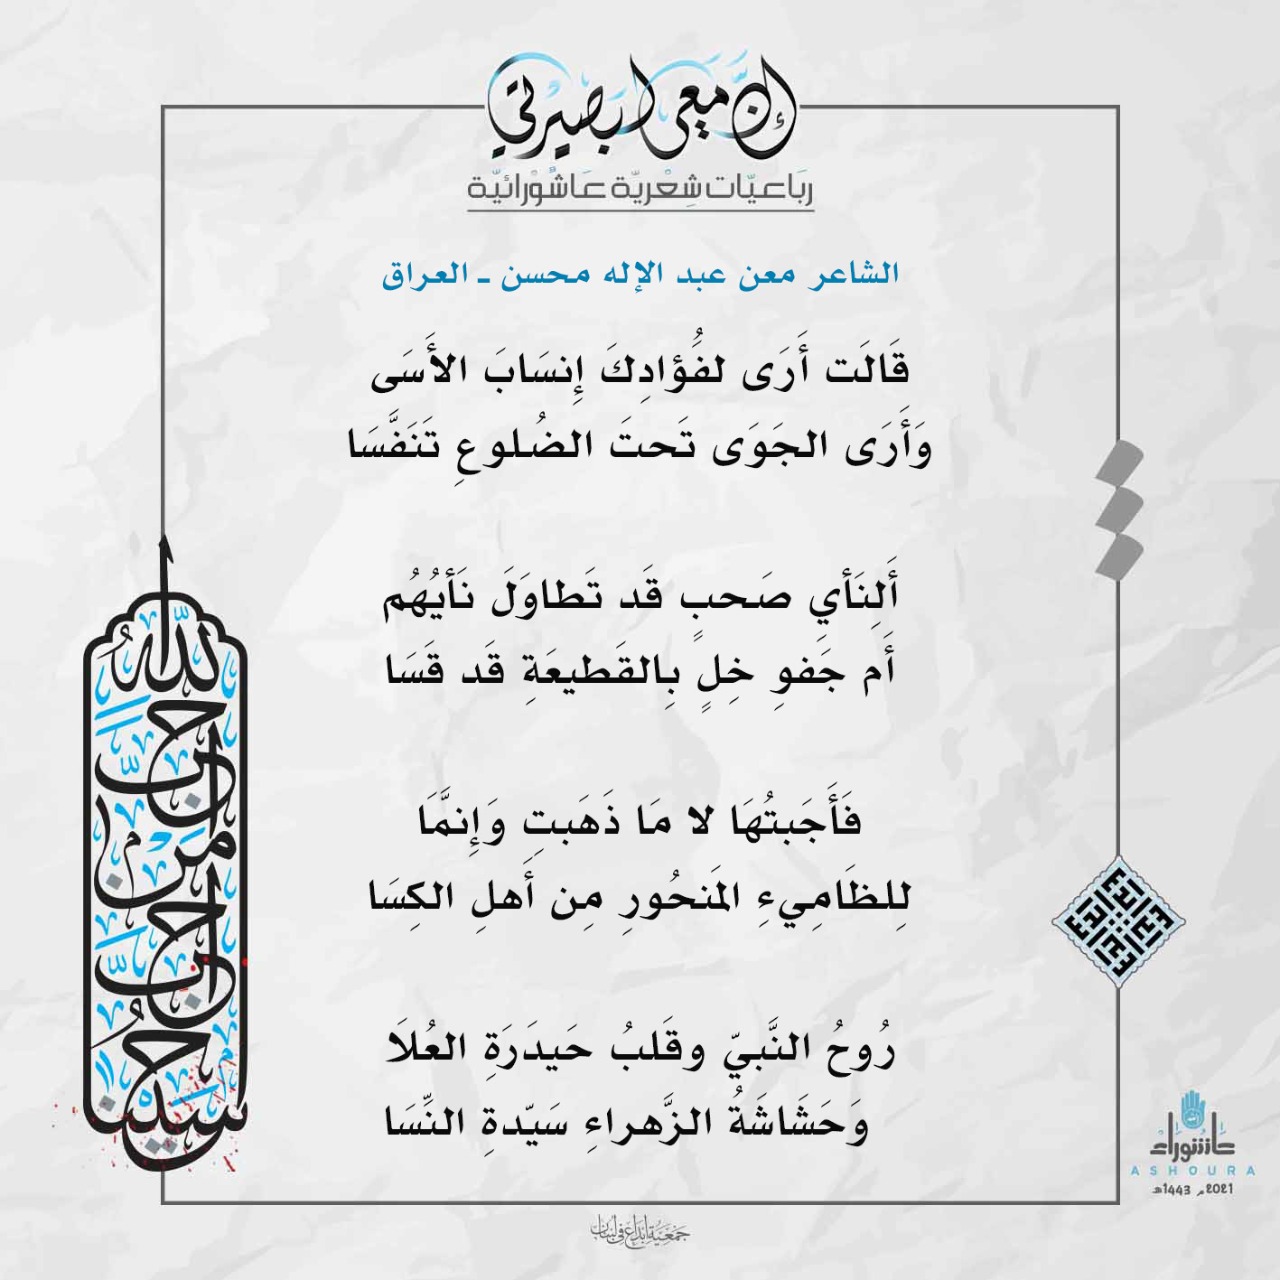 إنَّ معي لبصيرتي
رباعيّات شعريّة عاشورائيّة
الشاعر معن عبد الإله محسن ـ العراق
قَالَت أَرَى لفُؤادِكَ إِنسَابَ الأَسَى
وَأَرَى الجَوَى تَحتَ الضُلوعِ تَنَفَّسَا
أَلِنَأيِ صَحبٍ قَد تَطاوَلَ نَأيُهُم
أَم جَفوِ خِلٍ بِالقَطيعَةِ قَد قَسَا
فَأَجَبتُهَا لا مَا ذَهَبتِ وَإِنمَّا
لِلظَامِيءِ المَنحُورِ مِن أَهلِ الكِسَا
رُوحُ النَّبيّ وقَلبُ حَيدَرَةِ العُلَا
وَحَشَاشَةُ الزَّهراءِ سَيّدةِ النِّسَا
أحب الله من أحب حسينا
عاشوراء
ASHOURA
2021م 1443هـ
جمعية إبداع في لبنان